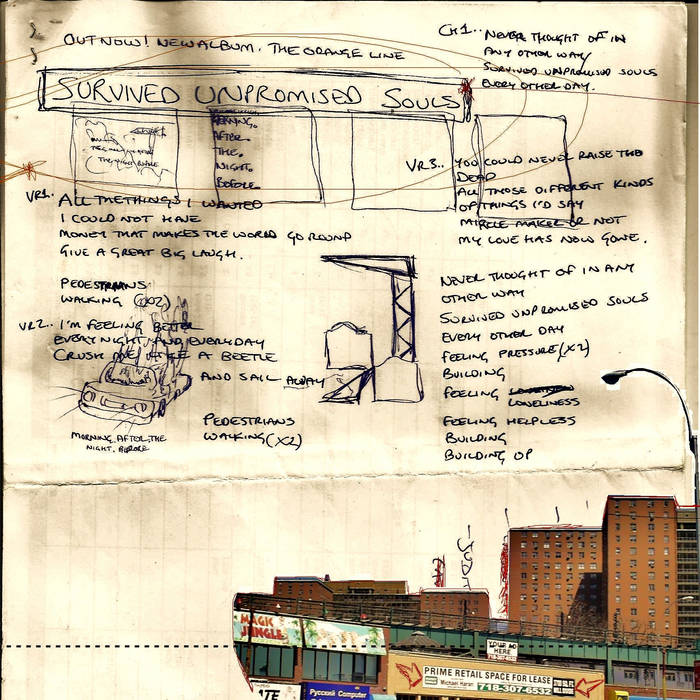 OUT NOW! NEW ALBUM. THE ORANGE LINE
SURVIVED UNPROMISED SOULS
MORNING.
AFTER.
THE.
NIGHT.
BEFORE.
CH1.. NEVER THOUGHT OF IN
ANY OTHER WAY
SURVIVED UNPROMISED SOULS
EVERY OTHER DAY.
VR1.. ALL THE THINGS I WANTED
I COULD NOT HAVE
MONEY THAT MAKES THE WORLD GO ROUND
GIVE A GREAT BIG LAUGH.
PEDESTRIANS
WALKING (X2)
VR2.. I'M FEELING BETTER
EVERY NIGHT AND EVERYDAY
CRUSH ME LIKE A BEETLE
AND SAIL AWAY
PEDESTRIANS
WALKING (X2)
MORNING. AFTER. THE
NIGHT. BEFORE
VR3.. YOU COULD NEVER RAISE THE
DEAD
ALL THOSE DIFFERENT KINDS
OF THINGS I'D SAY
MIRACLE MAKER OR NOT
MY LOVE HAS NOW GONE.
NEVER THOUGHT OF IN ANY
OTHER WAY
SURVIVED UNPROMISED SOULS
EVERY OTHER DAY
FEELING PRESSURE (X2)
BUILDING
FEELING
LONELINESS
FEELING HELPLESS
BUILDING
BUILDING UP
MAGIC
JUNGLE
YOUR AD
HERE
PRIME RETAIL SPACE FOR LEASE
Michael Haran 718-307-6532
Русский Computer